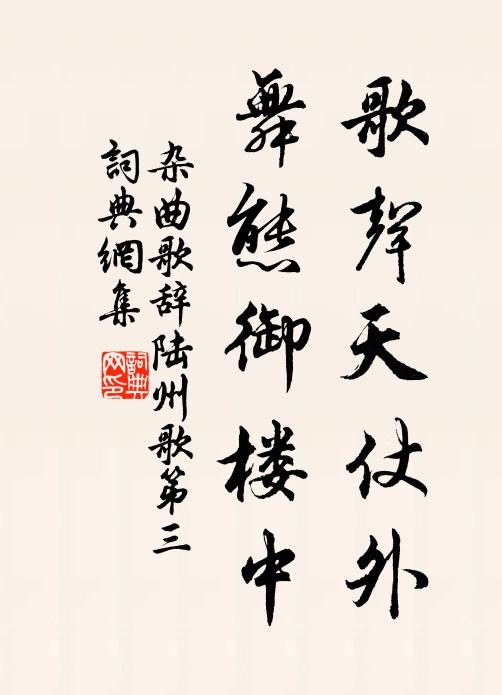 歌聲天仗外
舞態御楼中
杂曲歌辞陆州歌第三
詞典網集
詞典网印